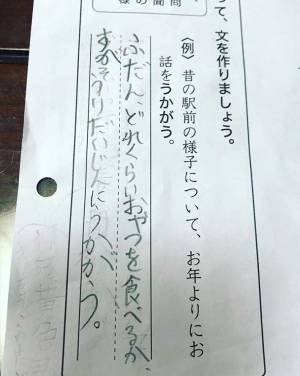 様の聞問
って、文を作りましょう。
〈例〉昔の駅前の様子について、お年よりにお
話をうかがう。
ふだん、どれくらいおやつを食べるか、
すがそうりだいじんにうかがう。